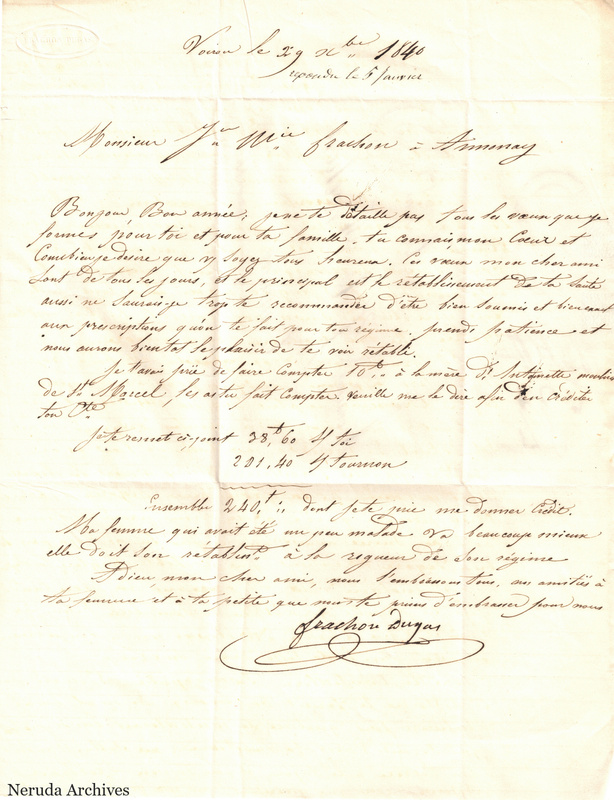 Voiron le 29 Xbre 1840
repondu le 5 Janvier
Monsieur Jn Mie frachon à Annonay
Bonjour, Bon année, je ne te détaille pas tous les vœux que je
formes pour toi et pour ta famille. tu connais mon Cœur et
Combien je desire que vs soyez tous heureux. Ces vœux mon cher ami
sont de tous les jours, et le principal est le rétablissement de ta santé
aussi ne saurais-je trop te recommander d'être bien soumis et bien exact
aux prescriptions qu'on te fait pour ton régime. prends patience et
nous aurons bientot le plaisir de te voir rétable.
Je t'avais prié de faire Compter 10f. à la mère d' Antoinette moulin
de St Marcel, les as tu fait Compter. veuille me le dire afin d'en créditer
ton Cte
Je te remet ci-joint 38f, 60 S/ toi
201, 40 S/ Tournon
Ensemble 240,f :, dont je te prie me donner Crédit.
Ma femme qui avait été un peu malade va beaucoup mieux
elle doit son retablist. à la rigueur de son régime
Adieu mon cher ami, nous t'embrassons tous, nos amitiés à
ta femme et à ta petite que nous te prions d'embrasser pour nous
frachon Dugas
Neruda Archives